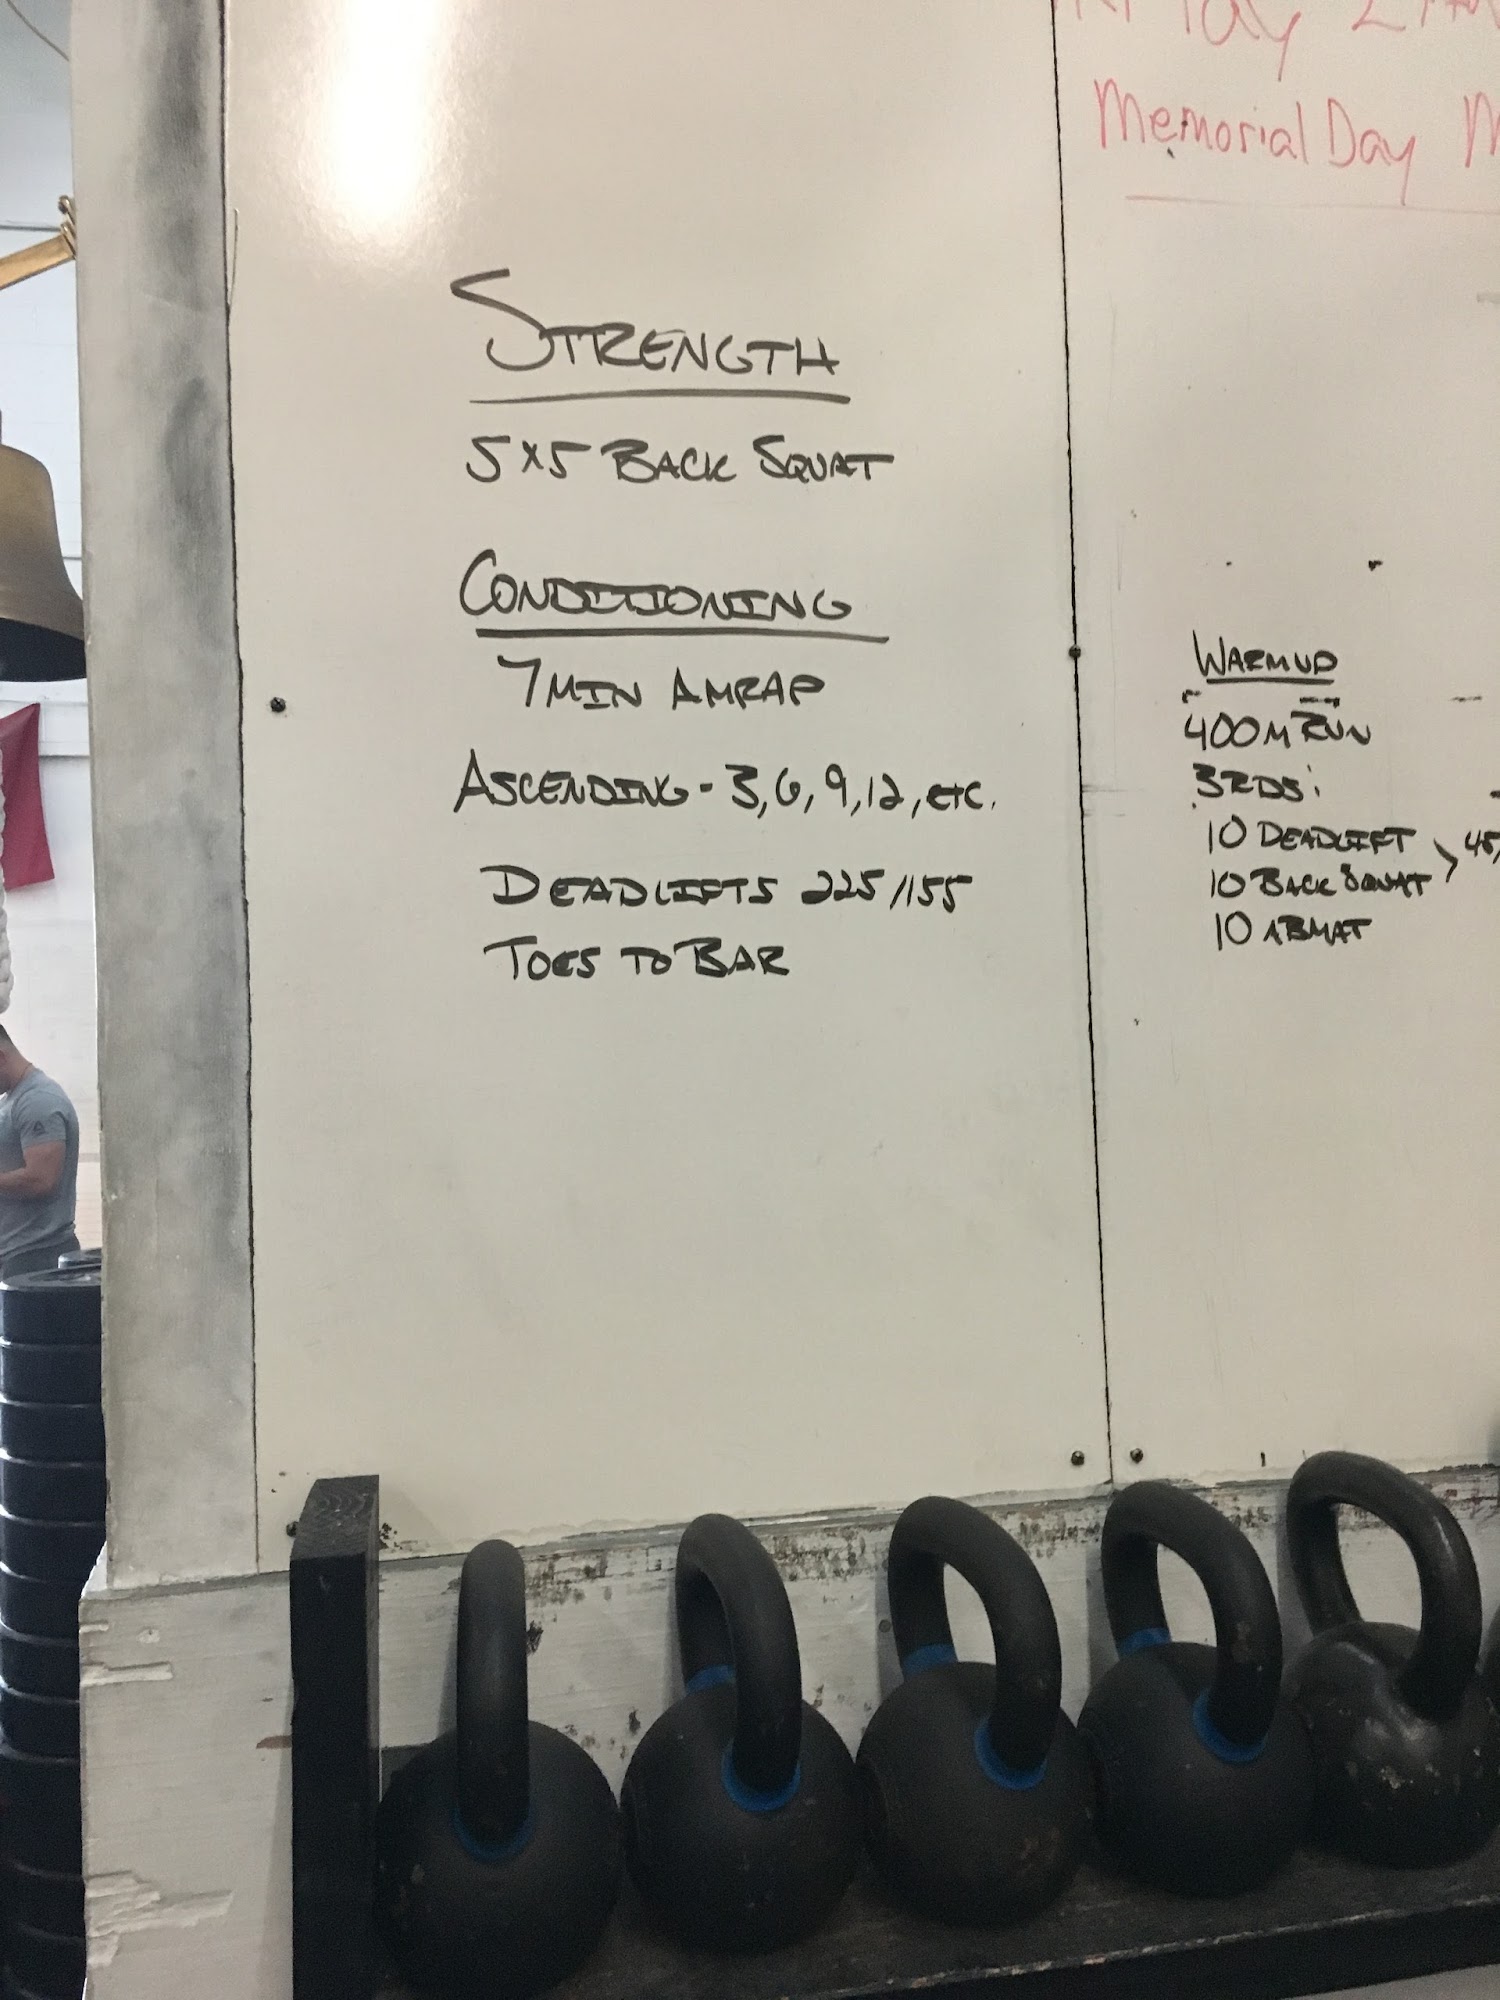 Memorial Day
STRENGTH
5x5 BACK SQUAT
CONDITIONING
7 MIN AMRAP
ASCENDING - 3, 6, 9, 12, ETC.
DEADLIFTS 225/155
TOES TO BAR
WARMUP
400M RUN
3 RDS:
10 DEADLIFT
10 BACK SQUAT
10 ABMAT